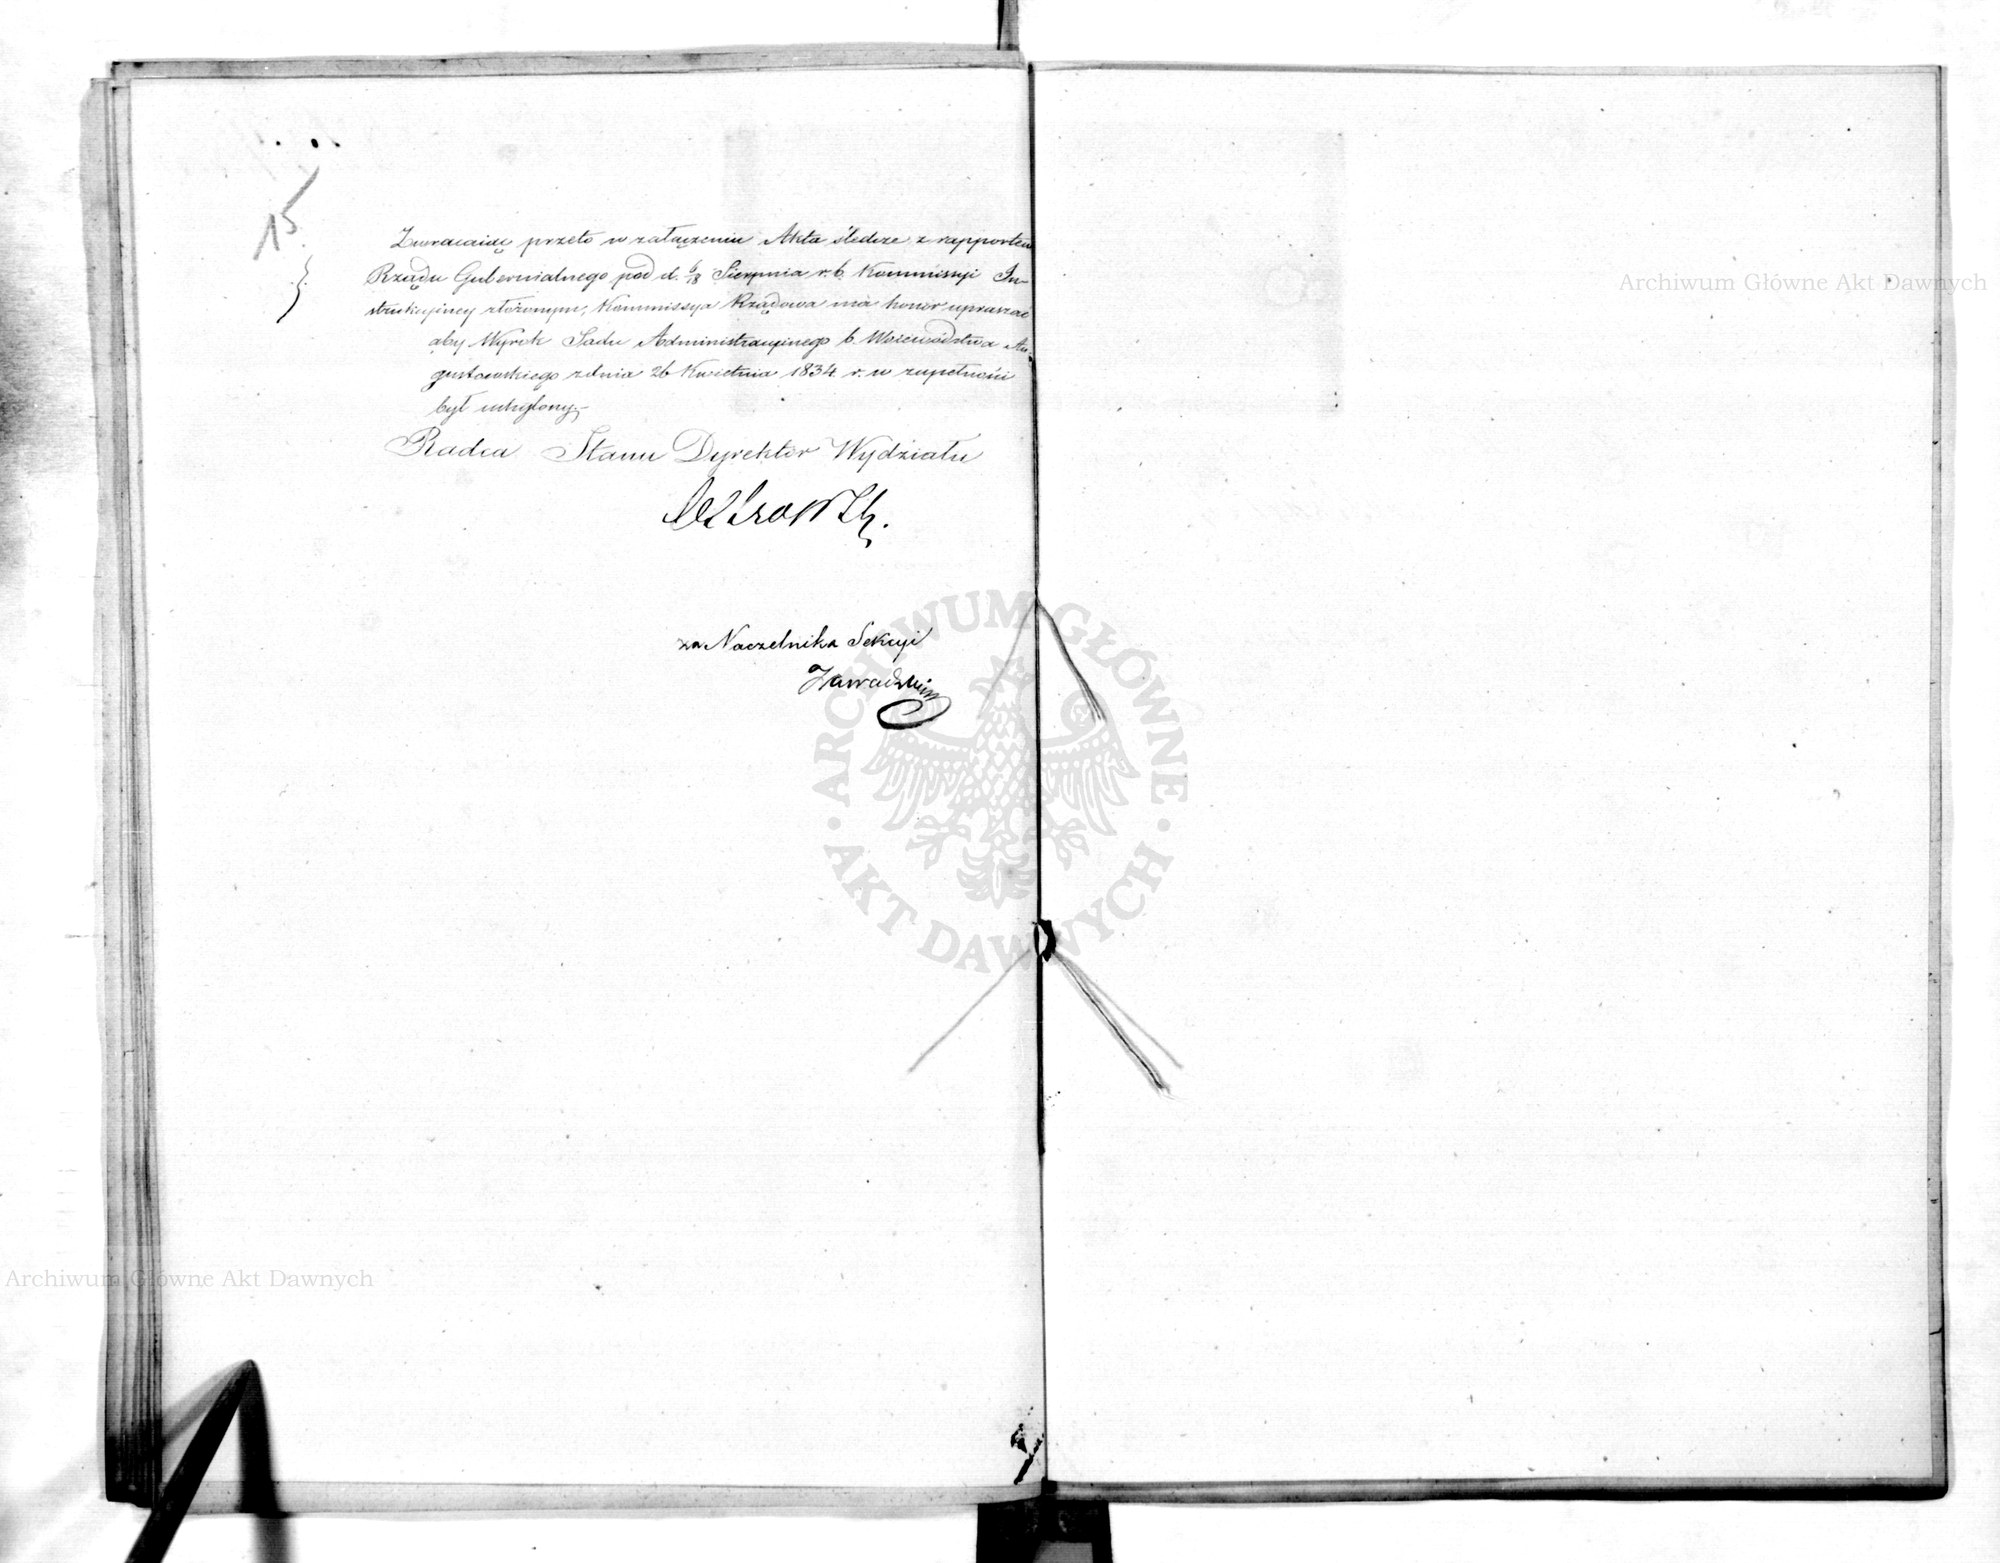 15
Zwracaiąc przeto w załączeniu Akta śledcze z rapportem
Rządu Gubernialnego pod d. 6/18 Sierpnia r. b. Kommissyi In-
strukcyiney złożonym, Kommissya Rządowa ma honor upraszać
aby Wyrok Sądu Administracyinego b. Województwa Au-
gustowskiego z dnia 26 Kwietnia 1834 r. w zupełności
był uchylony.-
Radca Stanu Dyrektor Wydziału
za Naczelnika Sekcyi
Zawadzki
Archiwum Główne Akt Dawnych
ARCHIWUM GŁÓWNE · AKT DAWNYCH ·
Archiwum Główne Akt Dawnych